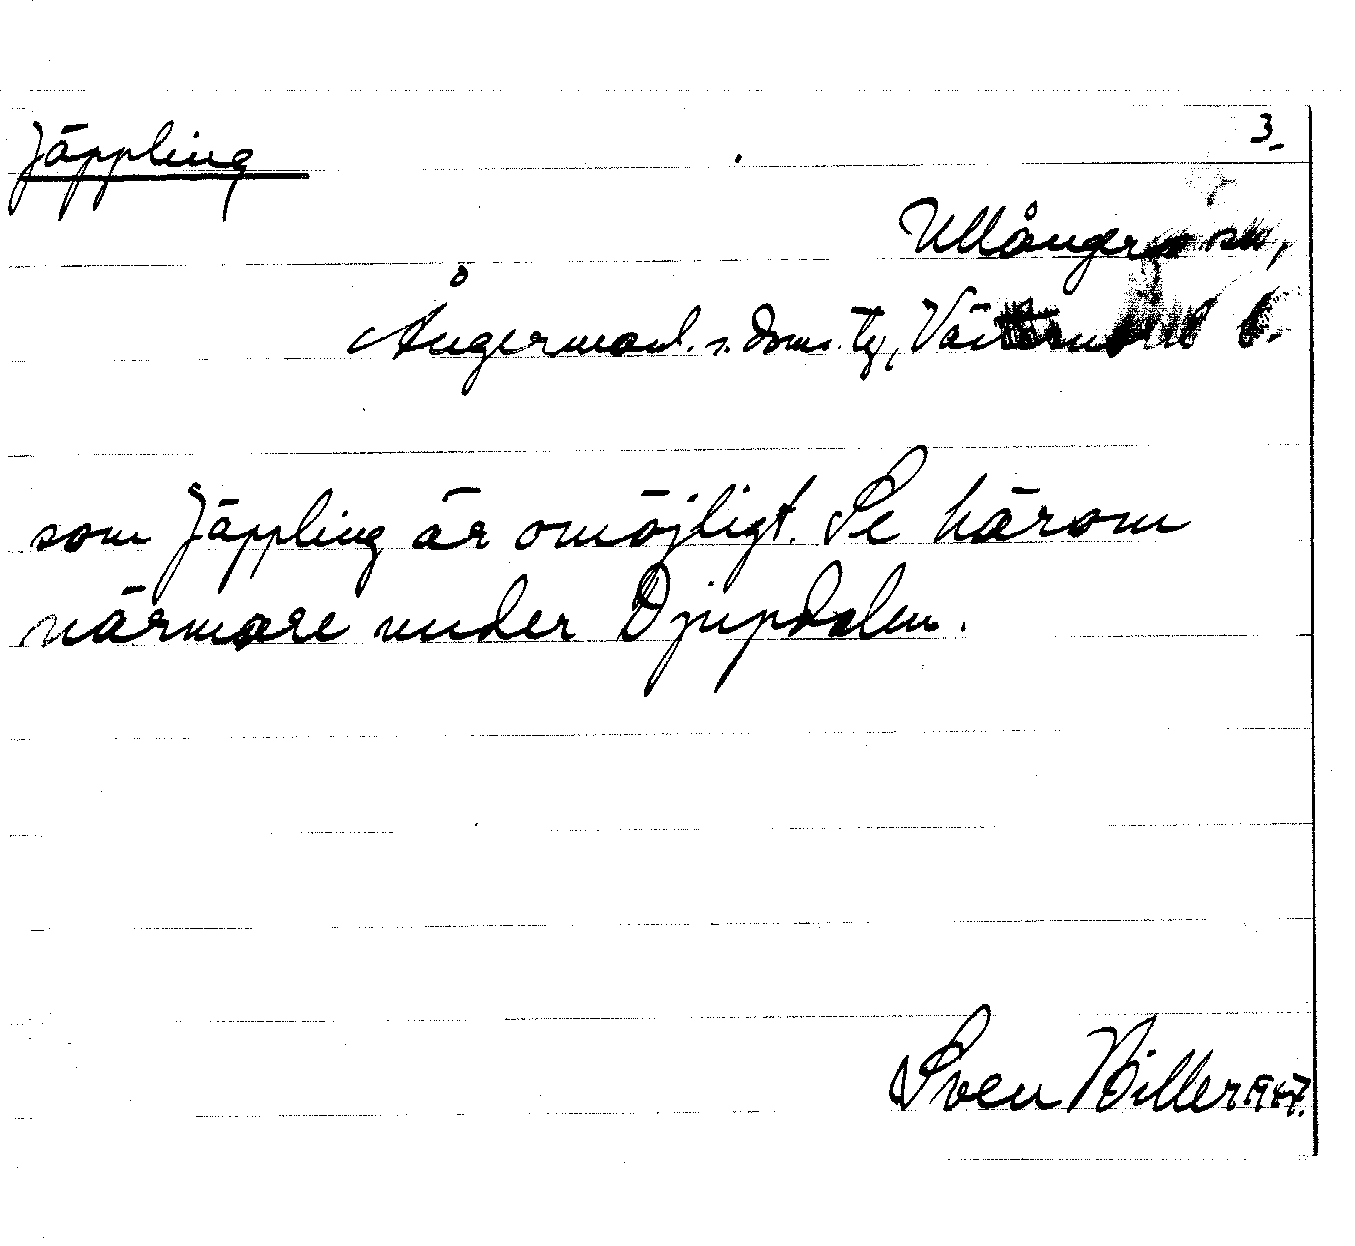 Jäppling
3.
Ullångers sn,
Ångermanl. s. doms. tg, Västernorrl. l.
som Jäppling är omöjligt. Se härom
närmare under Djupdalen.
Sven Biller 1947.